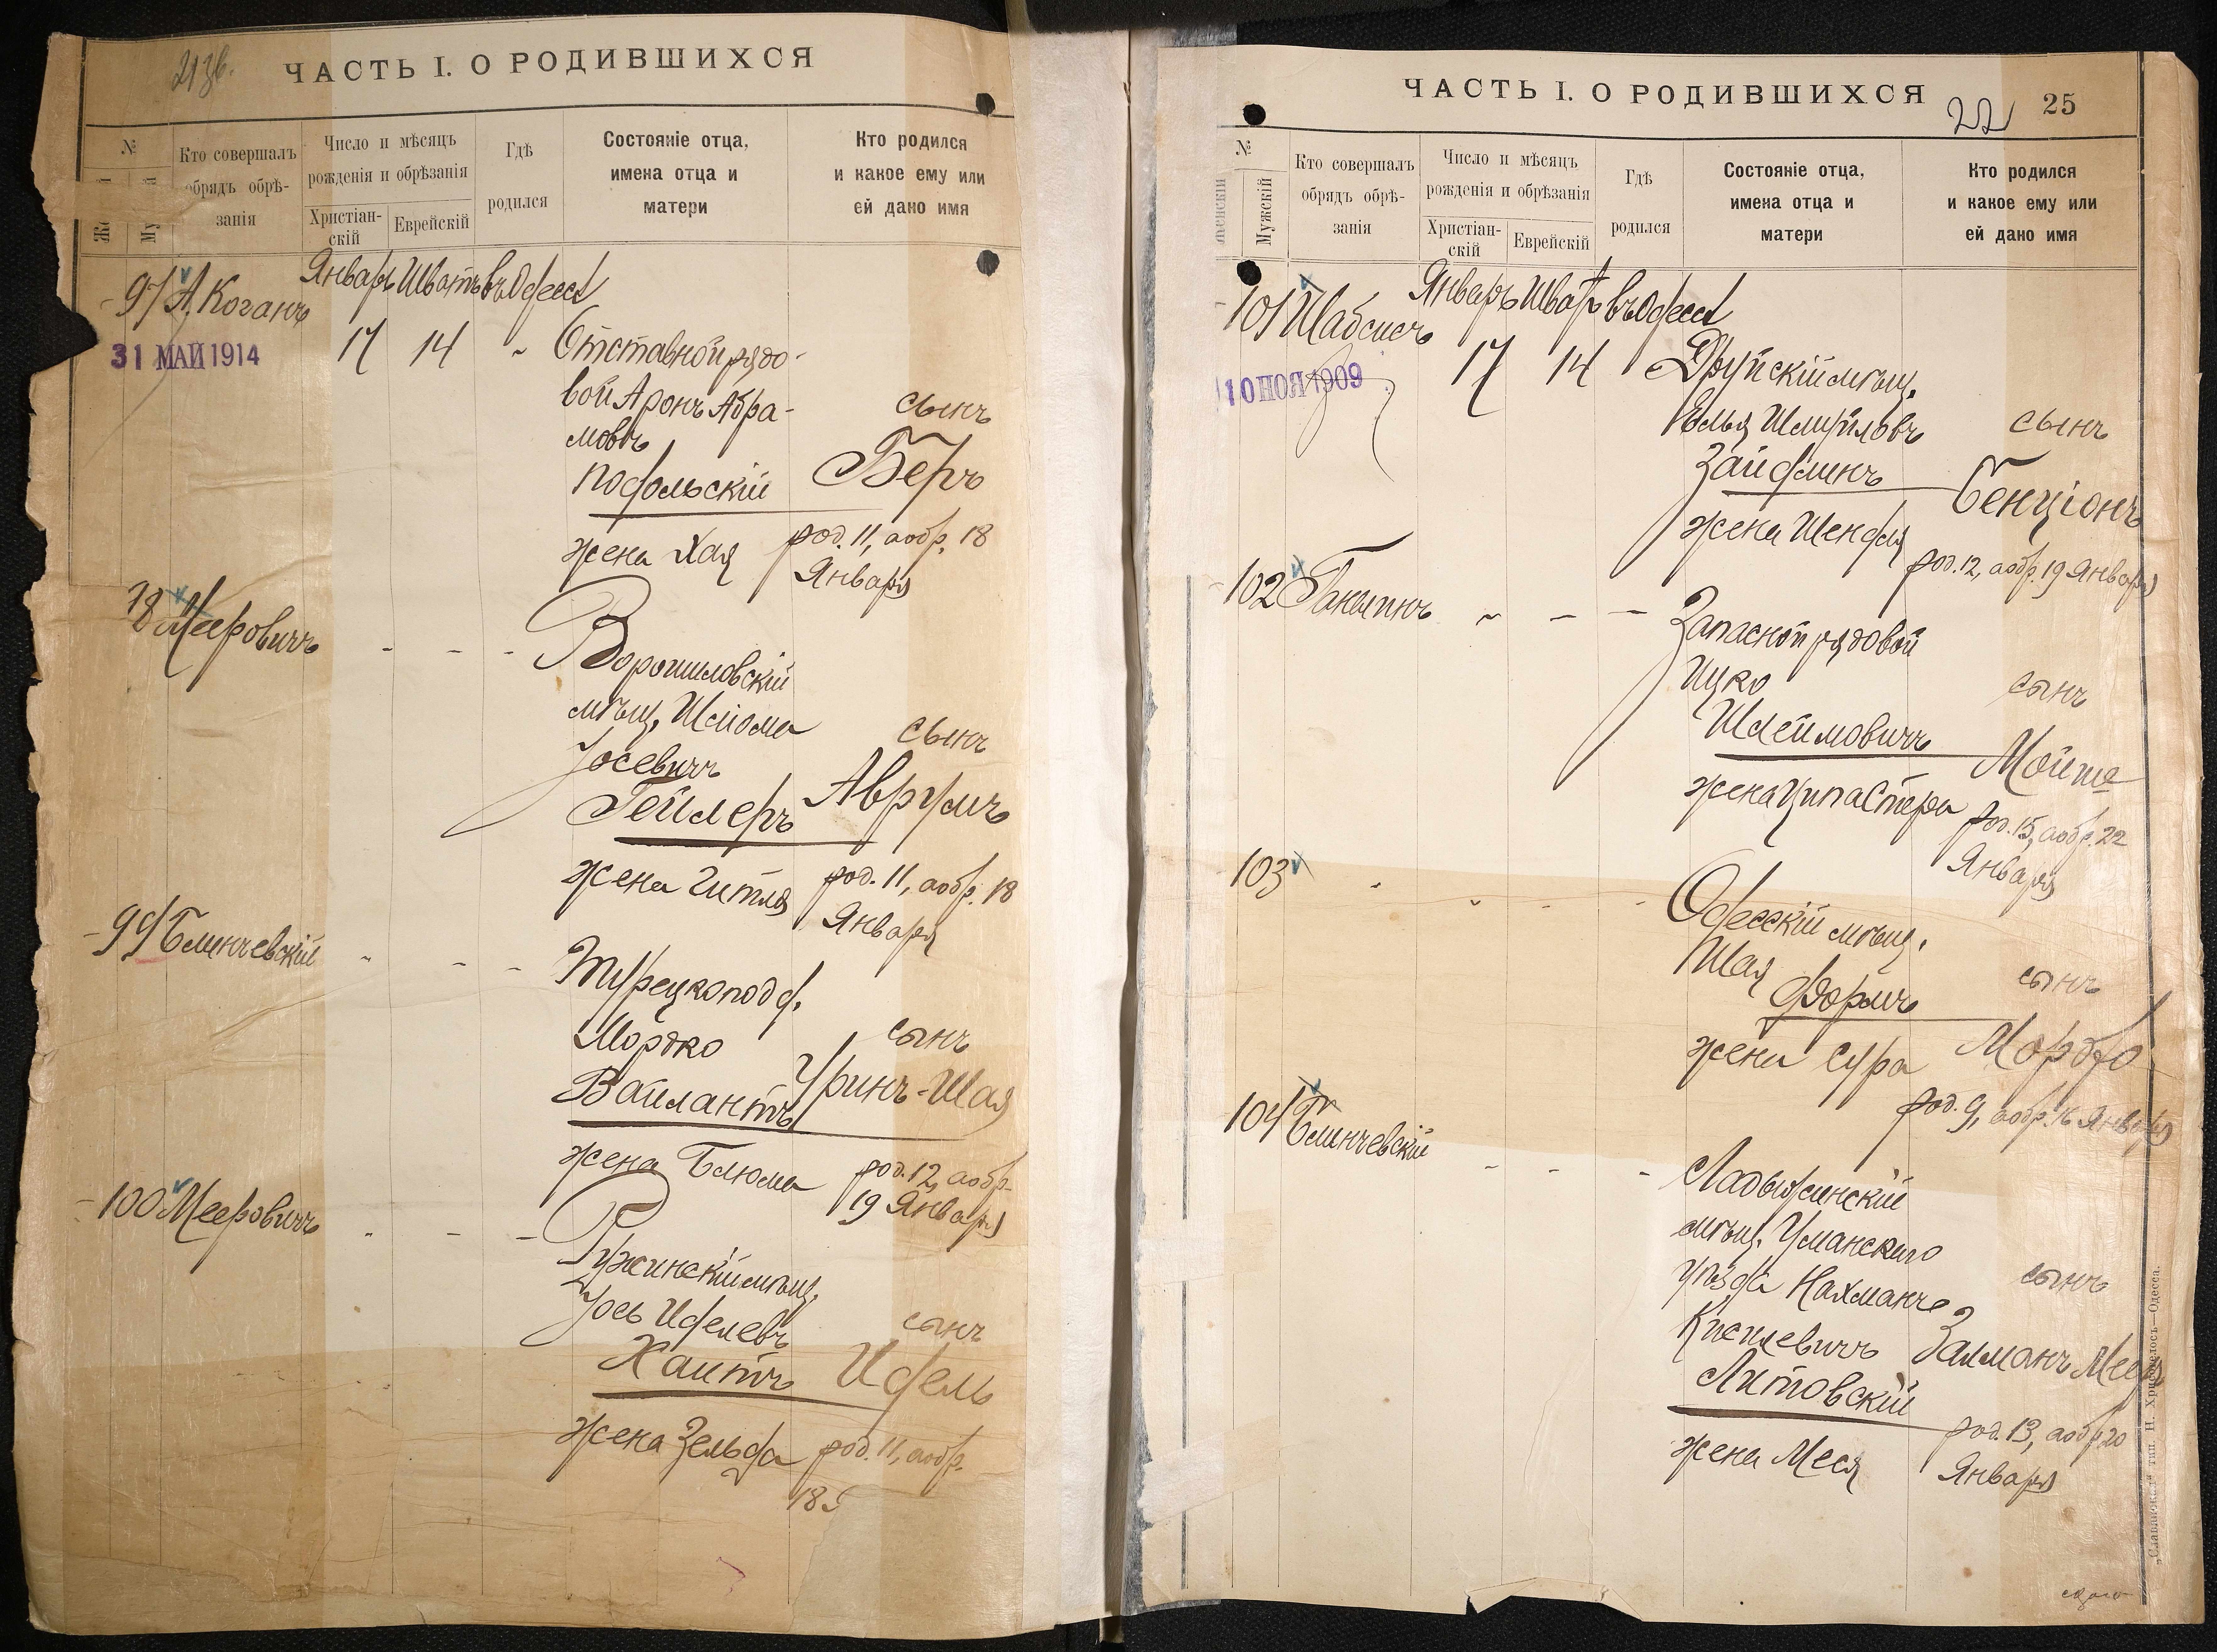 21 зв.
ЧАСТЬ I. О РОДИВШИХСЯ
№
Кто совершалъ
обрядъ обрѣ-
занія
Число и мѣсяцъ
рожденія и обрѣзанія
Христіан-
скій
Еврейскій
Гдѣ
родился
Состояніе отца,
имена отца и
матери
Кто родился
и какое ему или
ей дано имя
97 А. Коганъ
Январь Шватъ въ Одессѣ
31 МАЙ 1914
17 14 Отставной рядо-
вой Аронъ Абра-
мовъ
Подольскій
жена Хая
сынъ
Беръ
род. 11, а обр. 18
Января
98 Мееровичъ
Ворошиловскій
мѣщ. Шлома
Іосевичъ
Гейлеръ
жена Гитля
сынъ
Аврумъ
род. 11, а обр. 18
Января
99 Блинчевскій
Турецкоподд.
Мордко
Вайлантъ
жена Блюма
сынъ
Уринъ-Шая
род. 12, а обр.
19 Января
100 Мееровичъ
Ружинскій мѣщ.
Іось Иделевъ
Хаитъ
жена Зельда
сынъ
Идель
род. 11, а обр.
18
ЧАСТЬ I. О РОДИВШИХСЯ
22 25
№
Женскій
Мужскій
Кто совершалъ
обрядъ обрѣ-
занія
Число и мѣсяцъ
рожденія и обрѣзанія
Христіан-
скій
Еврейскій
Гдѣ
родился
Состояніе отца,
имена отца и
матери
Кто родился
и какое ему или
ей дано имя
101 Шабсисъ
Январь Шватъ въ Одессѣ
10 НОЯ 1909
17 14 Друйскій мѣщ.
Элья Шмуйловъ
Зайдлинъ
жена Шендля
сынъ
Бенціонъ
род. 12, а обр. 19 Января
102
Запасной рядовой
Ицко
Шлеймовичъ
жена Ципа Стера
сынъ
Мойше
род. 15, а обр. 22
Января
103
Одесскій мѣщ.
Шая
Формъ
жена Сура
сынъ
Мордко
род. 9, а обр. 16 Января
104 Блинчевскій
Ладыжинскій
мѣщ. Уманскаго
уѣзда Нахманъ
Кисилевичъ
Литовскій
жена Меся
сынъ
Залманъ Меер
род. 13, а обр. 20
Января
„Славянская“ тип. Н. Хрисогелосъ—Одесса.